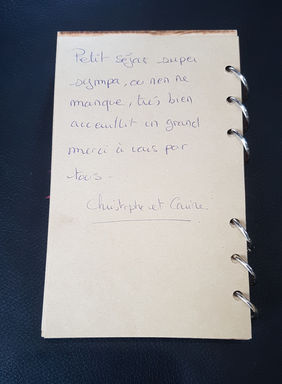 Petit séjour super
sympa, ou rien ne
manque, très bien
accueillit un grand
merci à vous pour
tous.
Christophe et